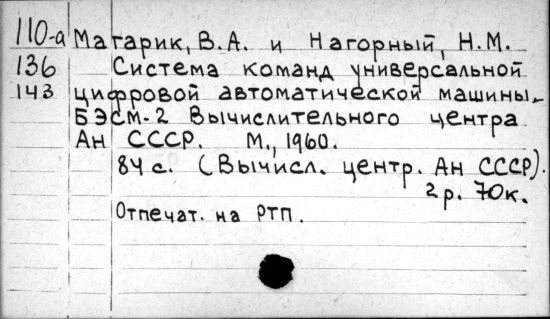 110-а Магарик, В.А. и Нагорный, Н.М.
136 Система команд универсальной
143 цифровой автоматической машины
БЭСМ-2 Вычислительного центра
Ан СССР. М., 1960.
84 с. (Вычисл. центр. Ан СССР).
2 р. 70 к.
Отпечат. на РТП.